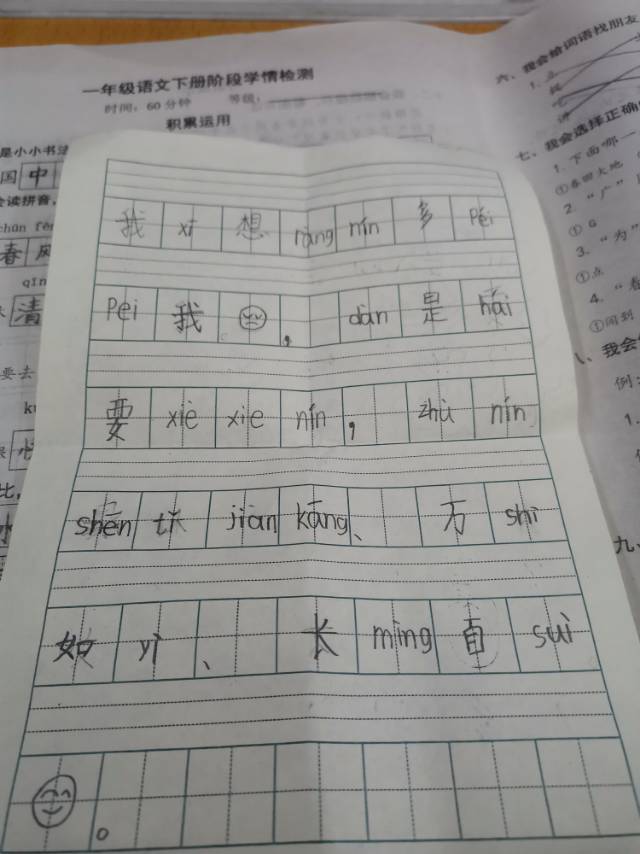 一年级语文下册阶段学情检测
时间：60分钟 等级：
积累运用
是小小书法
国 中
会读拼音，
chūn fēn
春 风
qīn
清
要去
六、我会给词语找朋友
七、我会选择正确
1. 下面哪一
①春回大地
2. “广”
① G
3. “为”
①点
4. “看
①闻到
八、我会
例：
1.
九、
我 xī 想 ràng nín 多 Péi
Péi 我 , dàn 是 hāi
要 xiè xie nín , zhù nín
shēn tǐ jiàn kāng 、 万 shì
如 yì 、 长 mìng 百 suì
。